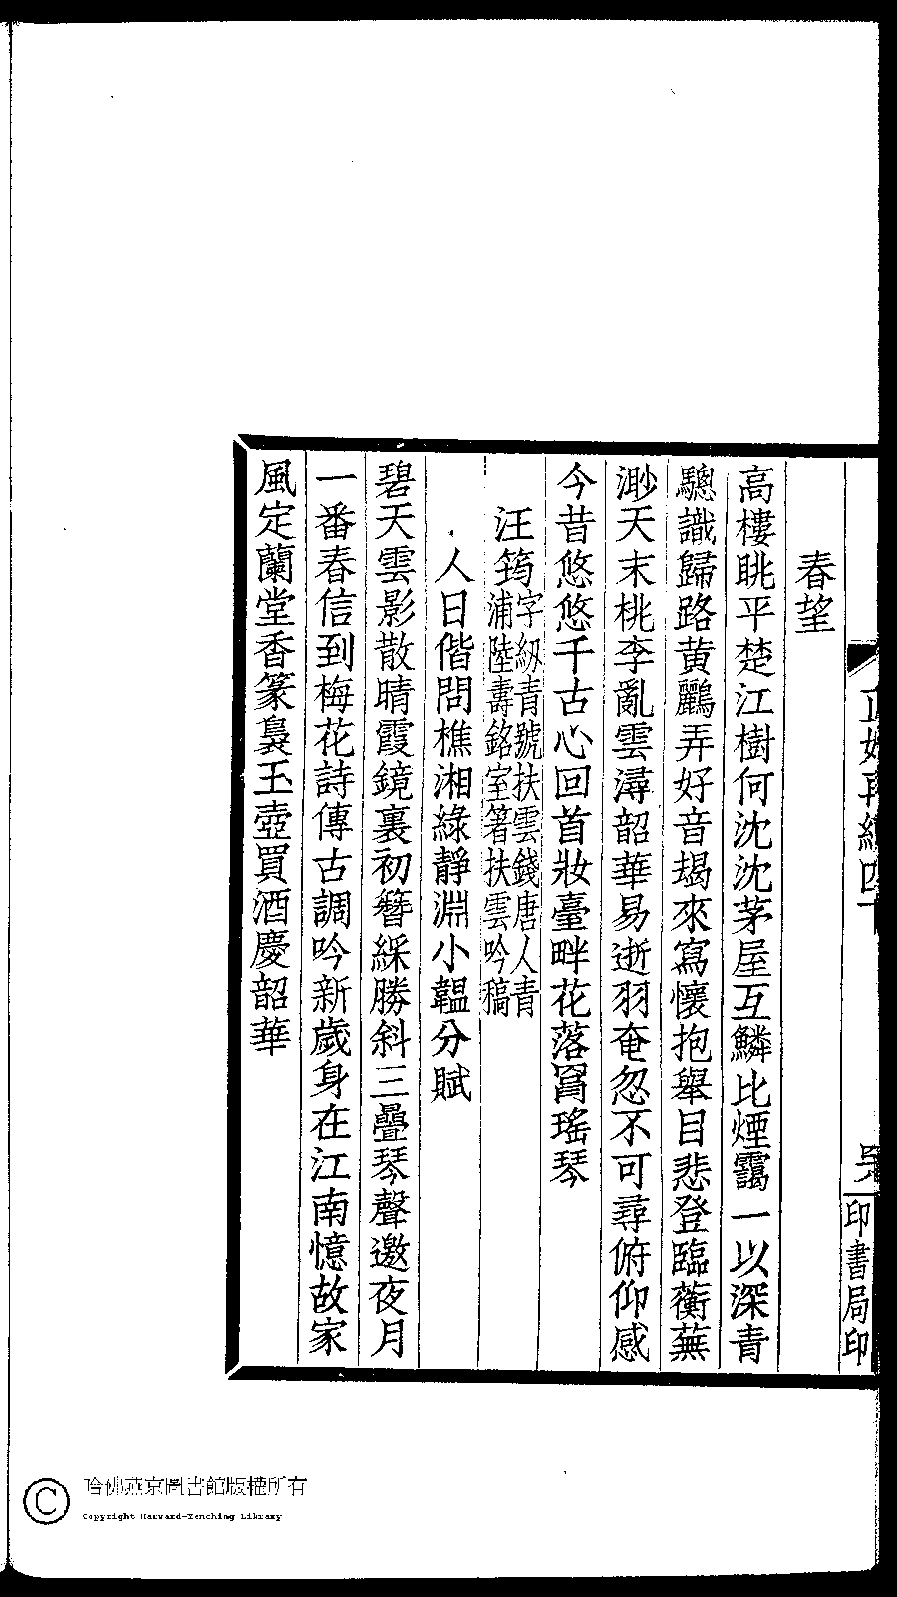 春望
高樓眺平楚江樹何沈沈茅屋互鱗比煙靄一以深青
驄識歸路黄鸝弄好音朅來寫懷抱舉目悲登臨蘅蕪
渺天末桃李亂雲潯韶華易逝羽奄忽不可尋俯仰感
今昔悠悠千古心回首妝臺畔花落罥瑤琴
汪筠字紉青號扶雲錢唐人青
浦陸壽銘室箸扶雲吟稿
人日偕問樵湘綠靜淵小韞分賦
碧天雲影散晴霞鏡裏初簪綵勝斜三疊琴聲邀夜月
一番春信到梅花詩傳古調吟新歲身在江南憶故家
風定蘭堂香篆裊玉壺買酒慶韶華
印書局印
哈佛燕京圖書館版權所有
Copyright Harvard-Yenching Library